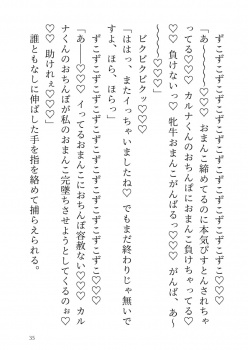 ずこずこずこずこずこずこずこずこ♡♡♡
「あ〜〜♡♡♡　おまんこ締めてるのに本気ぴすとんされちゃ
ってる♡♡♡　カルナくんのおちんぽにおまんこ負けちゃってる♡
♡♡　負けないっ♡♡　牝牛おまんこがんばるっ♡♡♡　がんば、あ〜
〜〜〜♡♡♡」
ビクビクビクッ♡♡♡
「ははっ、またイっちゃいましたね♡　でもまだ終わりじゃ無いで
すよ、ほら、ほらっ」
ずこずこずこずこずこずこずこずこ♡♡
「あ──♡♡♡　イってるおまんこにおちんぽ容赦ない♡♡♡　カル
ナくんのおちんぽが私のおまんこ完堕ちさせようとしてくるのぉ♡
♡♡　助けれぇ♡♡♡」
誰ともなしに伸ばした手を指を絡めて捕らえられる。
35